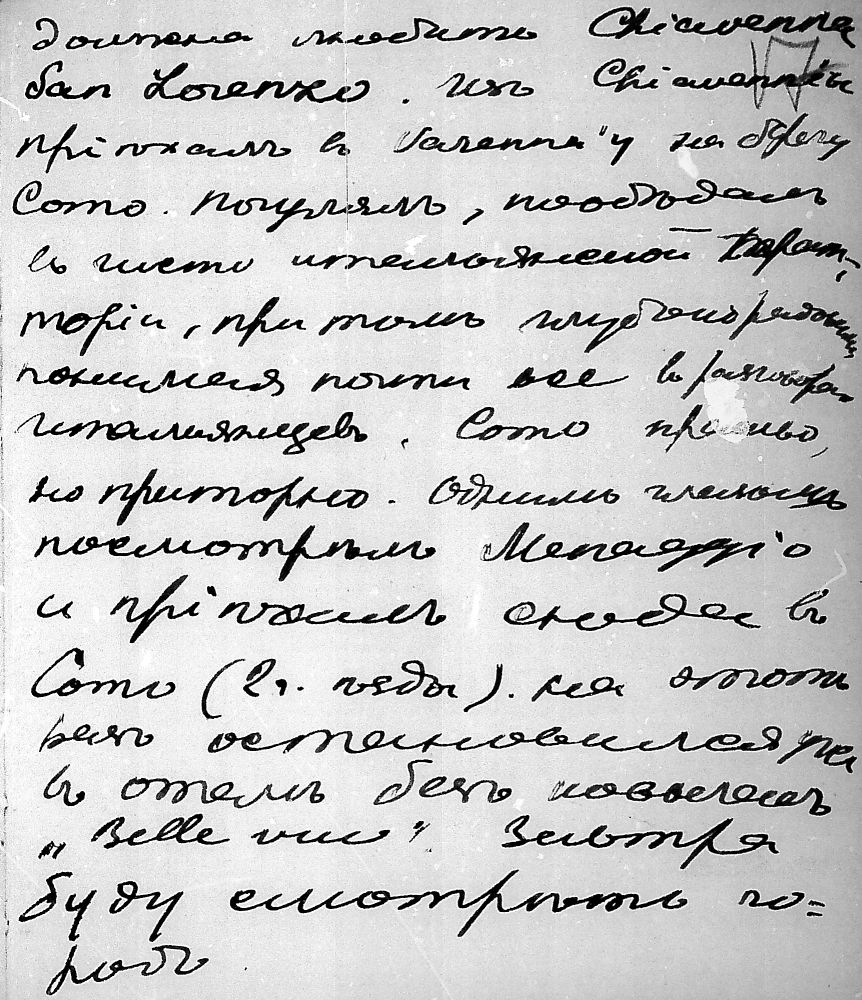 должна любить Chiavenna
San Lorenzo. Изъ Chiavenn'ы
пріѣхалъ в Varenna'у на берегу
Como. Погулялъ, пообѣдалъ
въ чисто итальянской
торіи, при томъ
понимая почти все в разговорѣ
итальянцевъ. Como красиво,
но приторно. Однимъ глазомъ
посмотрѣлъ Менаджіо
и пріѣхалъ сюда въ
Como (2 ч. ѣзды). На этотъ
разъ остановился уже
въ отелѣ безъ
„Belle vue“. Завтра
буду смотрѣть го=
родъ